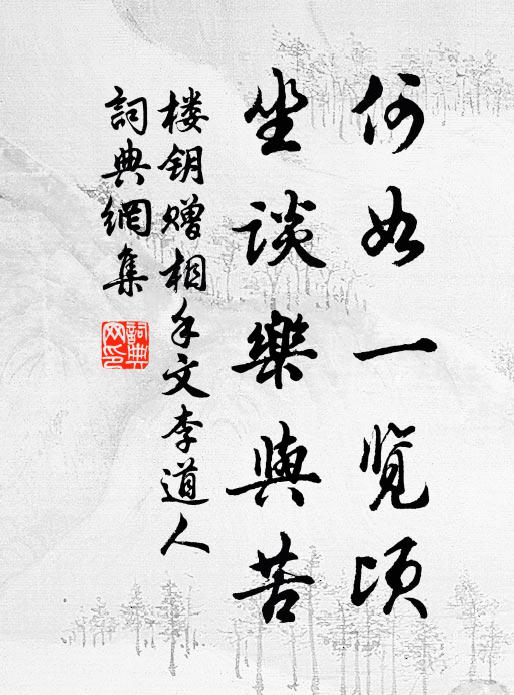 何如一览顷
坐谈樂與苦
楼钥赠相手文李道人
詞典網集
詞典
网印